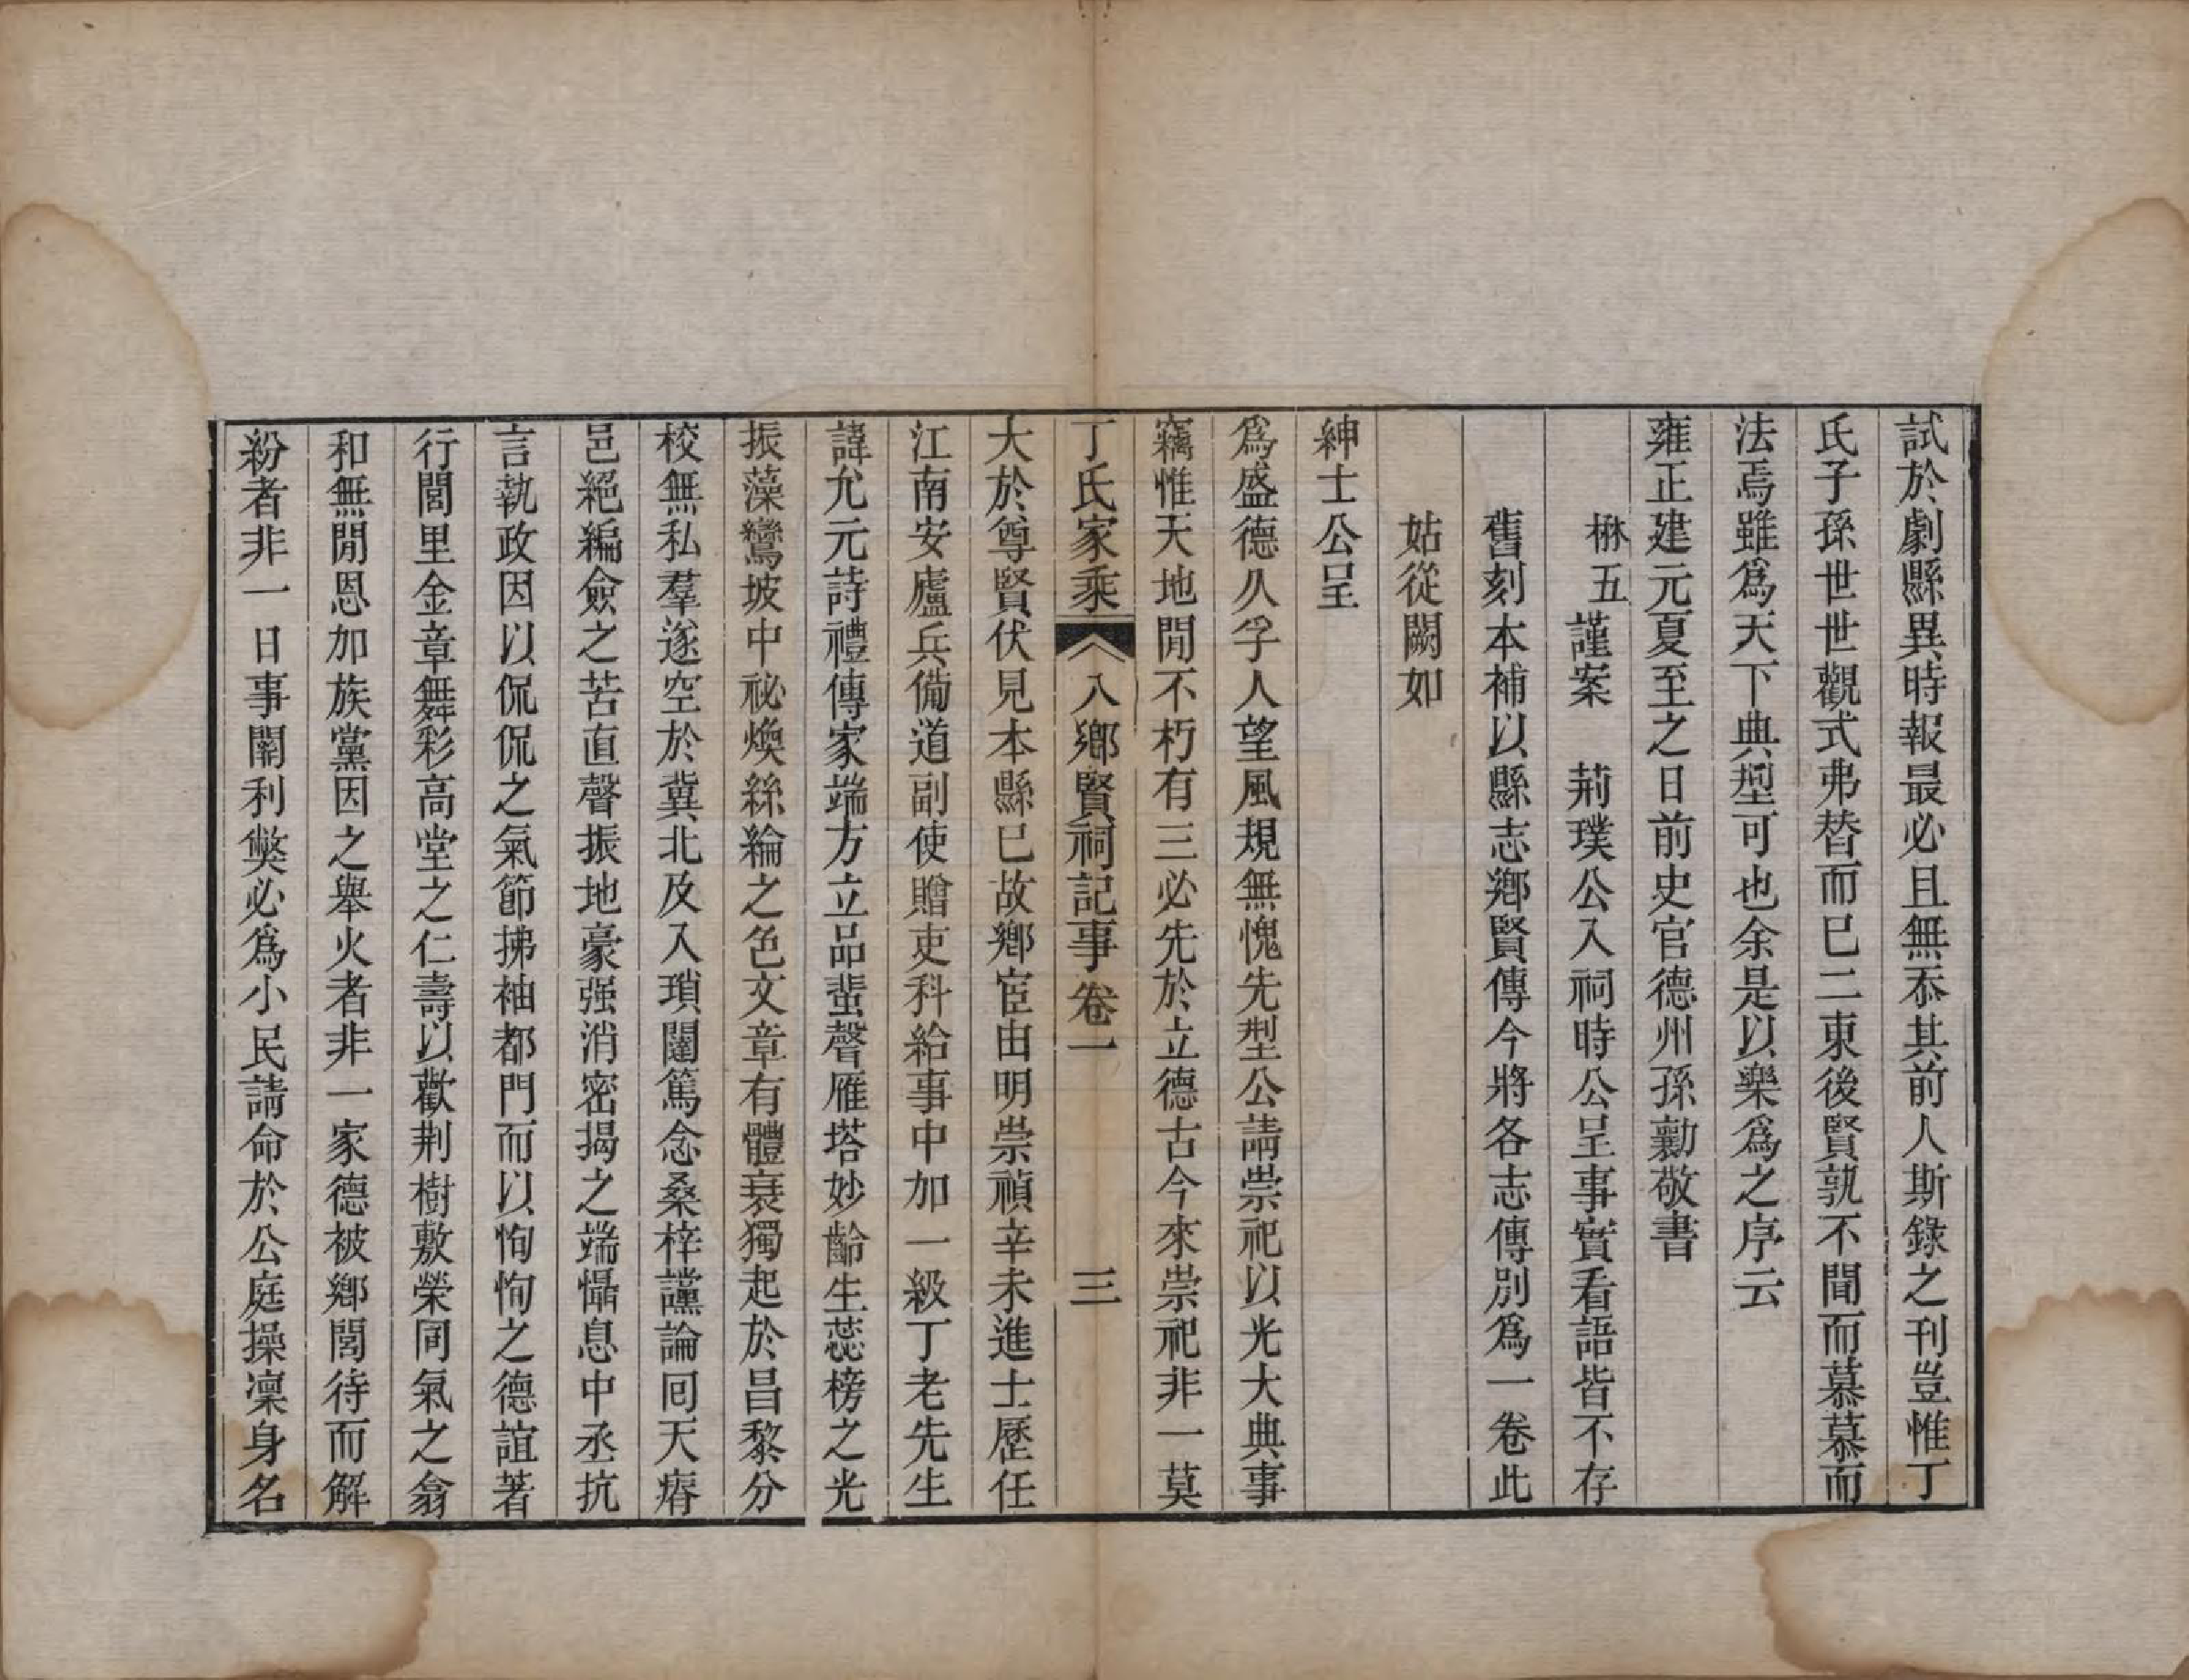 試於劇縣異時報最必且無忝其前人斯錄之刊豈惟丁
氏子孫世世觀式弗替而已二東後賢孰不聞而慕慕而
法焉雖爲天下典型可也余是以樂爲之序云
雍正建元夏至之日前史官德州孫勷敬書
楙五謹案 荊璞公入祠時公呈事實看語皆不存
舊刻本補以縣志鄉賢傳今將各志傳別爲一卷此
姑從闕如
紳士公呈
爲盛德久孚人望風規無愧先型公請崇祀以光大典事
竊惟天地閒不朽有三必先於立德古今來崇祀非一莫
丁氏家乘 入鄉賢祠記事卷一 三
大於尊賢伏見本縣已故鄉宦由明崇禎辛未進士歷任
江南安廬兵備道副使贈吏科給事中加一級丁老先生
諱允元詩禮傳家端方立品蜚聲雁塔妙齡生蕊榜之光
振藻鸞坡中祕煥絲綸之色文章有體衰獨起於昌黎分
校無私羣遂空於冀北及入瑣闥篤念桑梓讜論囘天瘠
邑絕編僉之苦直聲振地豪强消密揭之端懾息中丞抗
言執政因以侃侃之氣節拂袖都門而以恂恂之德誼著
行閭里金章舞彩高堂之仁壽以歡荆樹敷榮同氣之翕
和無閒恩加族黨因之舉火者非一家德被鄉閭待而解
紛者非一日事關利獘必爲小民請命於公庭操凜身名